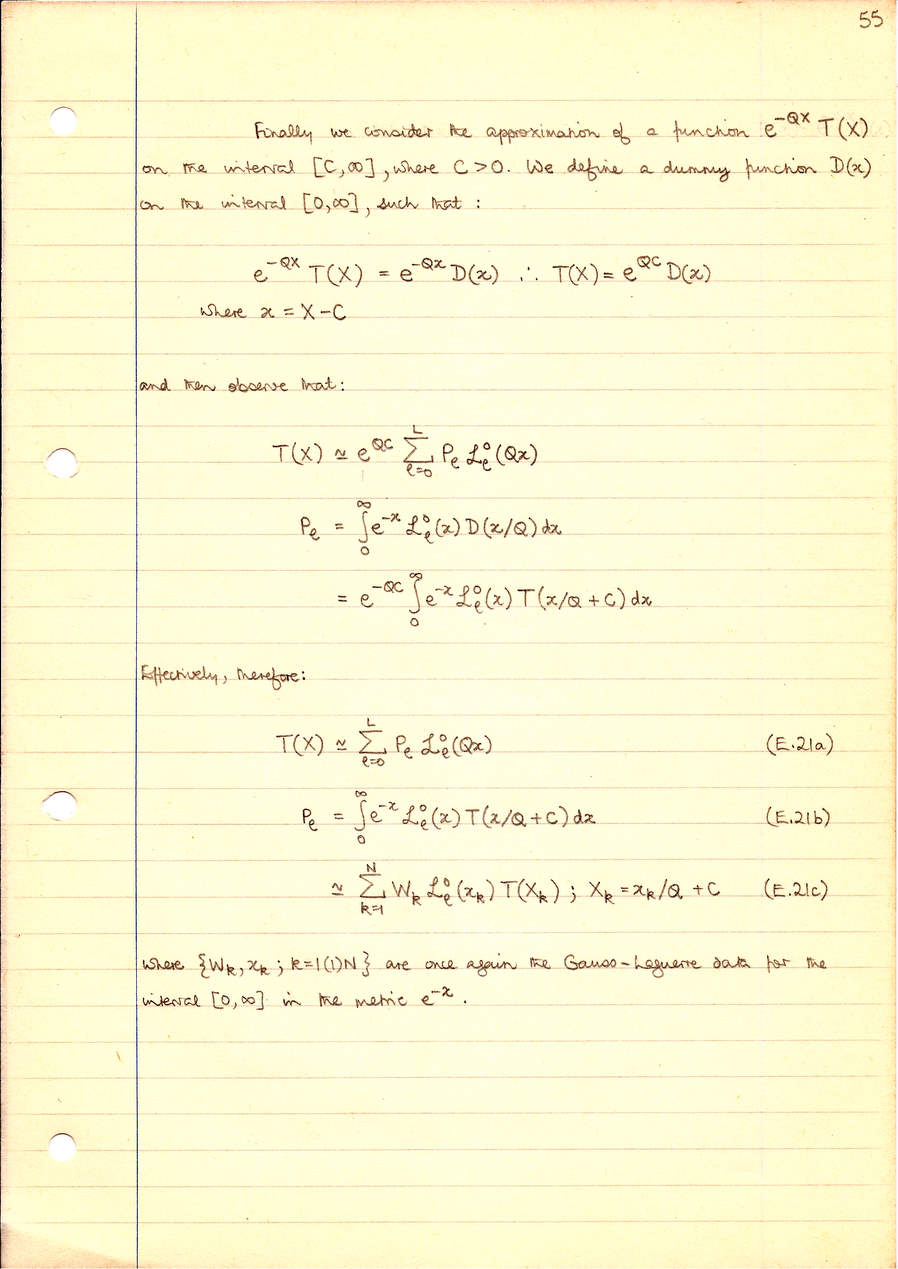 55
Finally we consider the approximation of a function e^{-QX} T(X)
on the interval [C,∞], where C > 0. We define a dummy function D(x)
on the interval [0,∞], such that :
e^{-QX} T(X) = e^{-Qx} D(x) ∴ T(X) = e^{QC} D(x)
where x = X - C
and then observe that :
T(X) ≃ e^{QC} ∑_{ℓ=0}^{L} P_ℓ ℒ_ℓ^0(Qx)
P_ℓ = ∫_0^∞ e^{-x} ℒ_ℓ^0(x) D(x/Q) dx
= e^{-QC} ∫_0^∞ e^{-x} ℒ_ℓ^0(x) T(x/Q + C) dx
Effectively, therefore :
T(X) ≃ ∑_{ℓ=0}^{L} P_ℓ ℒ_ℓ^0(Qx) (E.21a)
P_ℓ = ∫_0^∞ e^{-x} ℒ_ℓ^0(x) T(x/Q + C) dx (E.21b)
≃ ∑_{k=1}^{N} W_k ℒ_ℓ^0(x_k) T(X_k) ; X_k = x_k/Q + C (E.21c)
where {W_k, x_k ; k=1(1)N} are once again the Gauss-Laguerre data for the
interval [0,∞] in the metric e^{-x} .